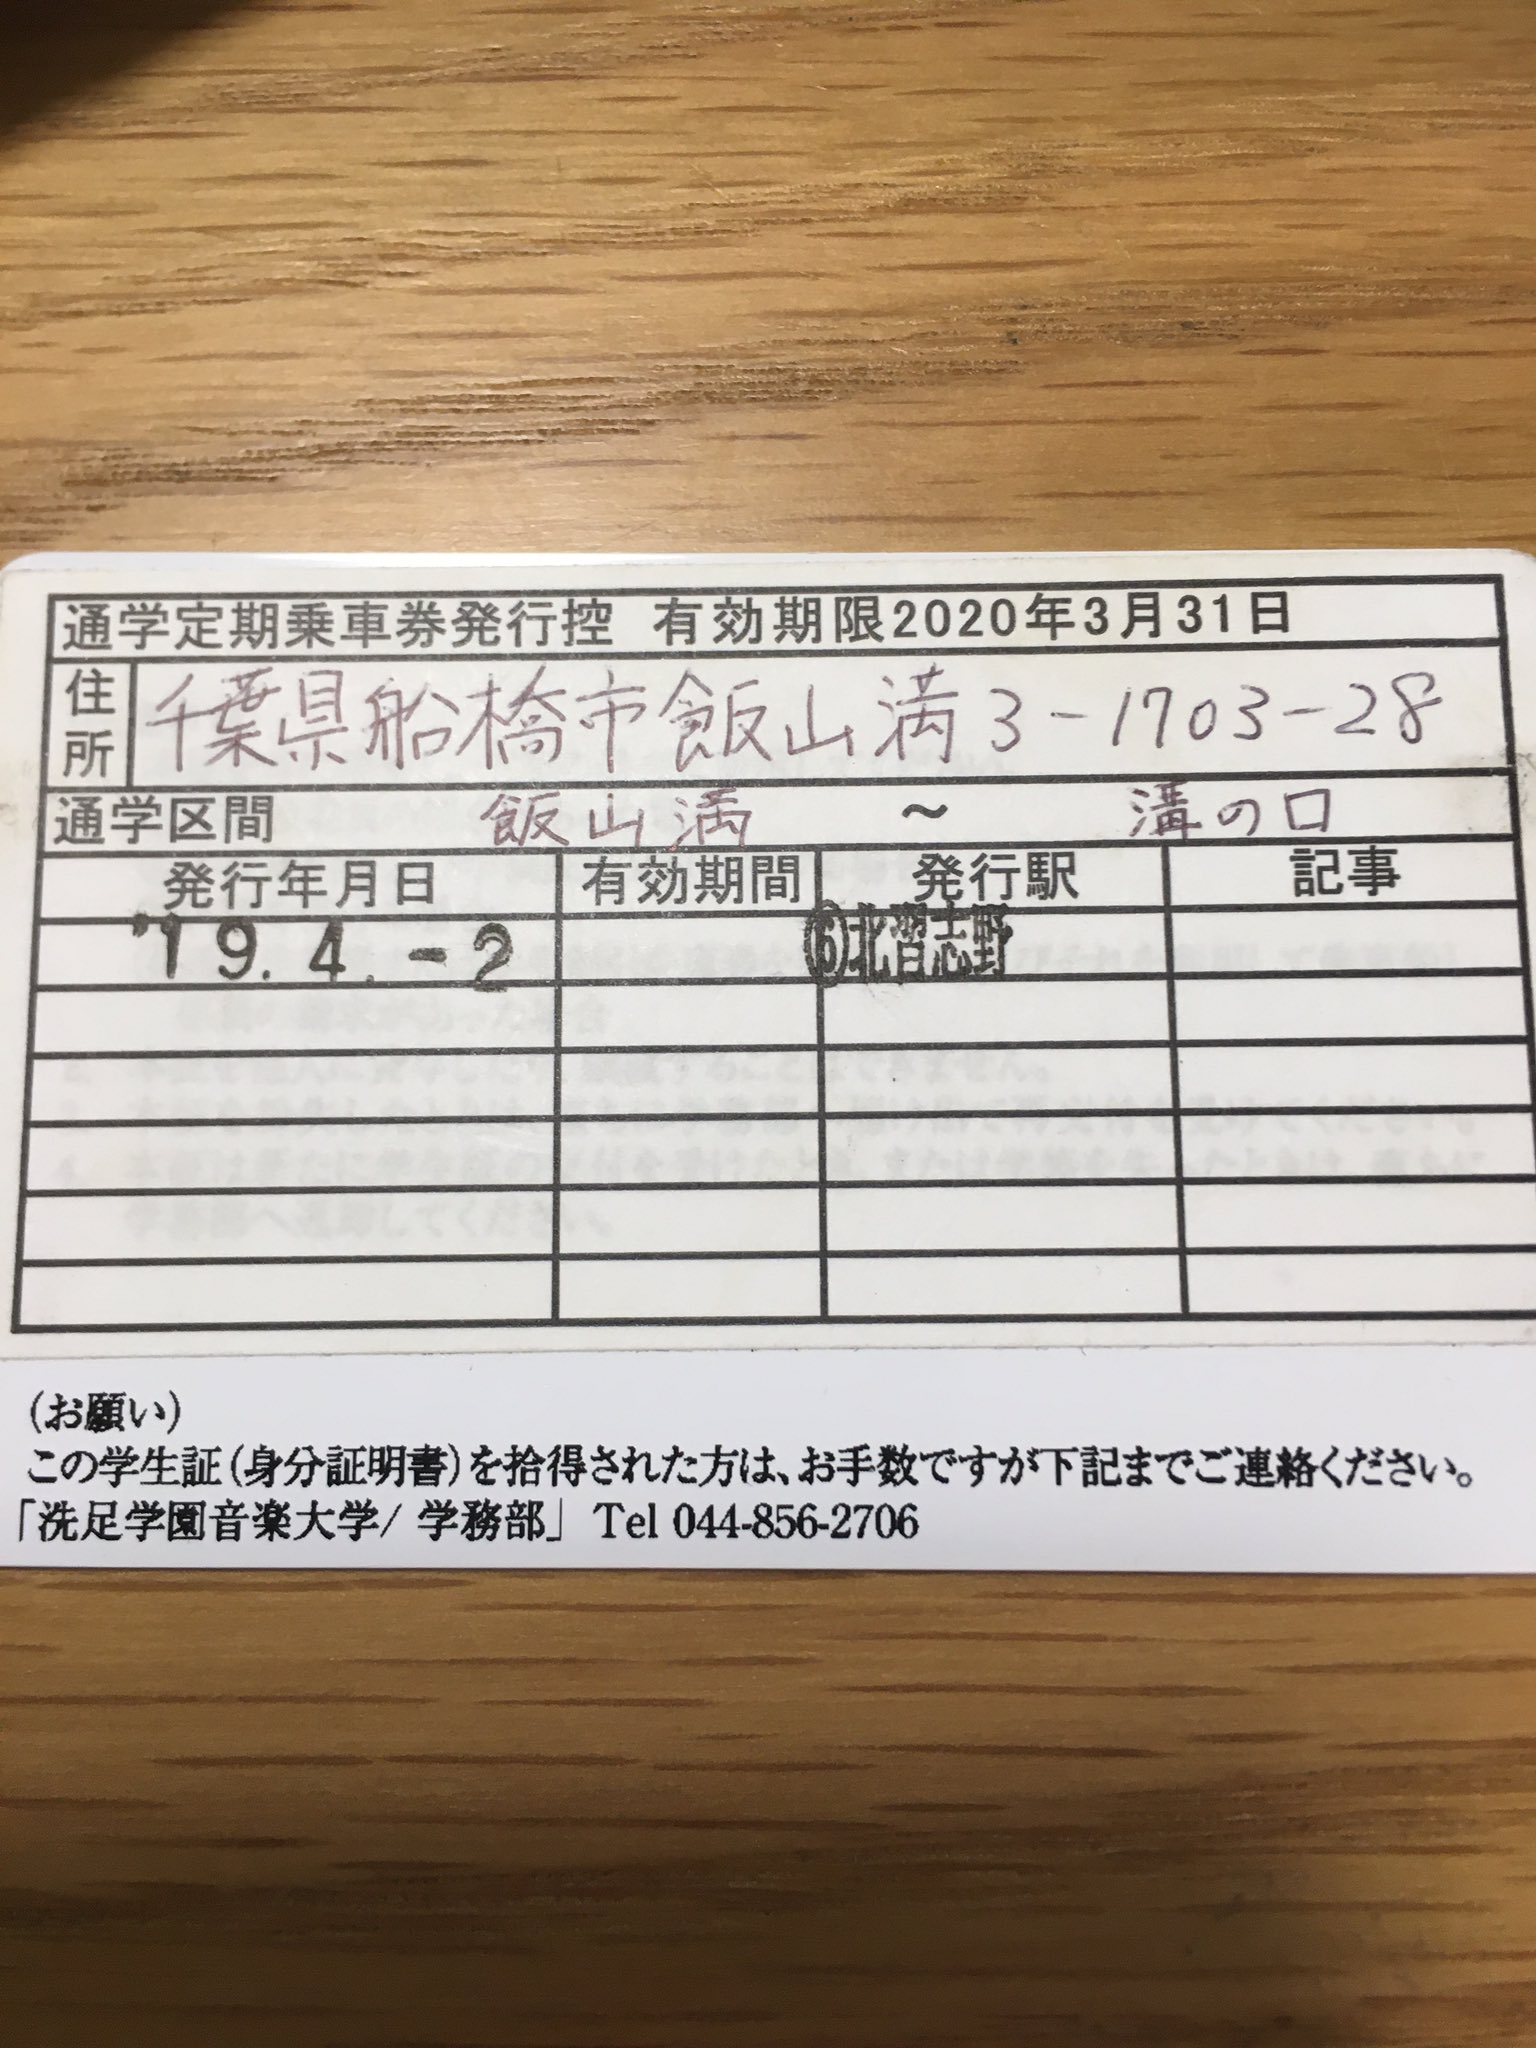 通学定期乗車券発行控 有効期限2020年3月31日
住所 千葉県船橋市飯山満3-1703-28
通学区間 飯山満 ~ 溝の口
発行年月日 有効期間 発行駅 記事
'19.4.-2 ⑥北習志野
(お願い)
この学生証(身分証明書)を拾得された方は、お手数ですが下記までご連絡ください。
「洗足学園音楽大学/ 学務部」 Tel 044-856-2706